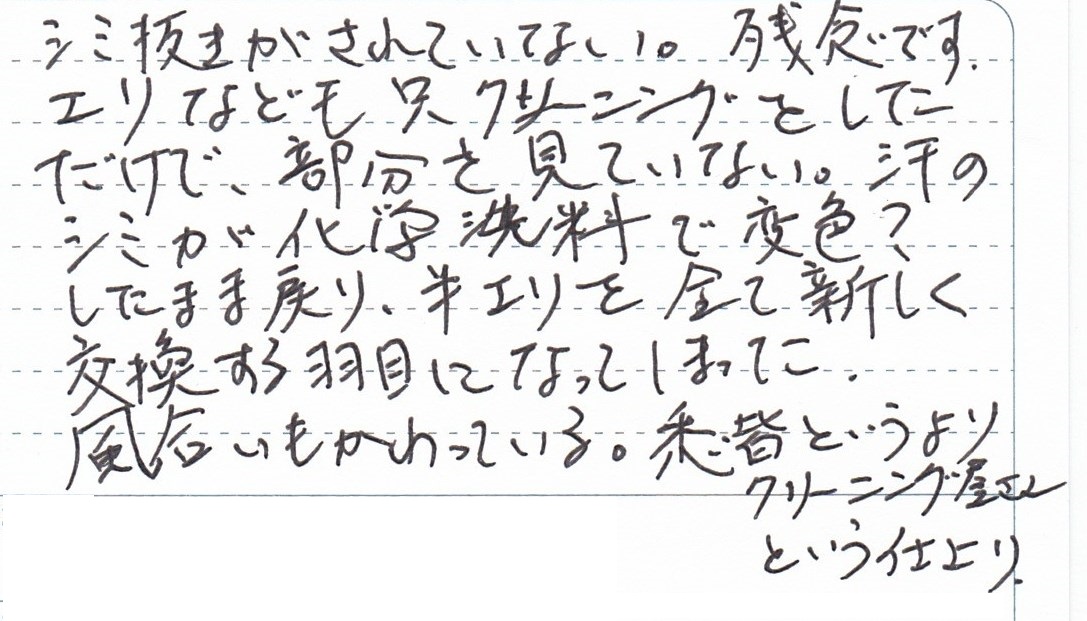 シミ抜きがされていない。残念です.
エリなども只クリーニングをした
だけで、部分を見ていない。汗の
シミが化学洗料で変色?
したまま戻り、半エリを全て新しく
交換する羽目になってしまった.
風合いもかわっている。悉皆というより
クリーニング屋さん
という仕上り.